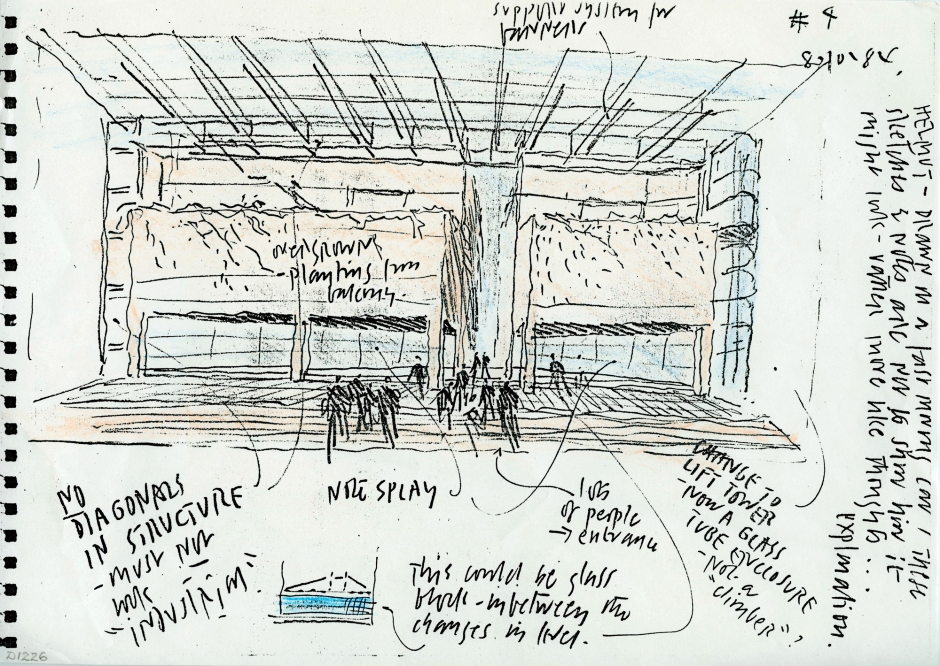 support system for
banners
# 4
OVERGROWING
- planting from
balcony.
HELMUT - DRAWN IN A fast moving car! These
sketches & notes are not to show how it
might look - rather more like thoughts..
explanation.
NO
DIAGONALS
IN STRUCTURE
- must not
look
- "industrial"
NOTE SPLAY
lots
of people
→ entrance
CHANGE TO
LIFT TOWER
- NOW A GLASS
TUBE ENCLOSURE
- Not a
"climber",
This could be glass
block - inbetween the
changes in level.
D1226